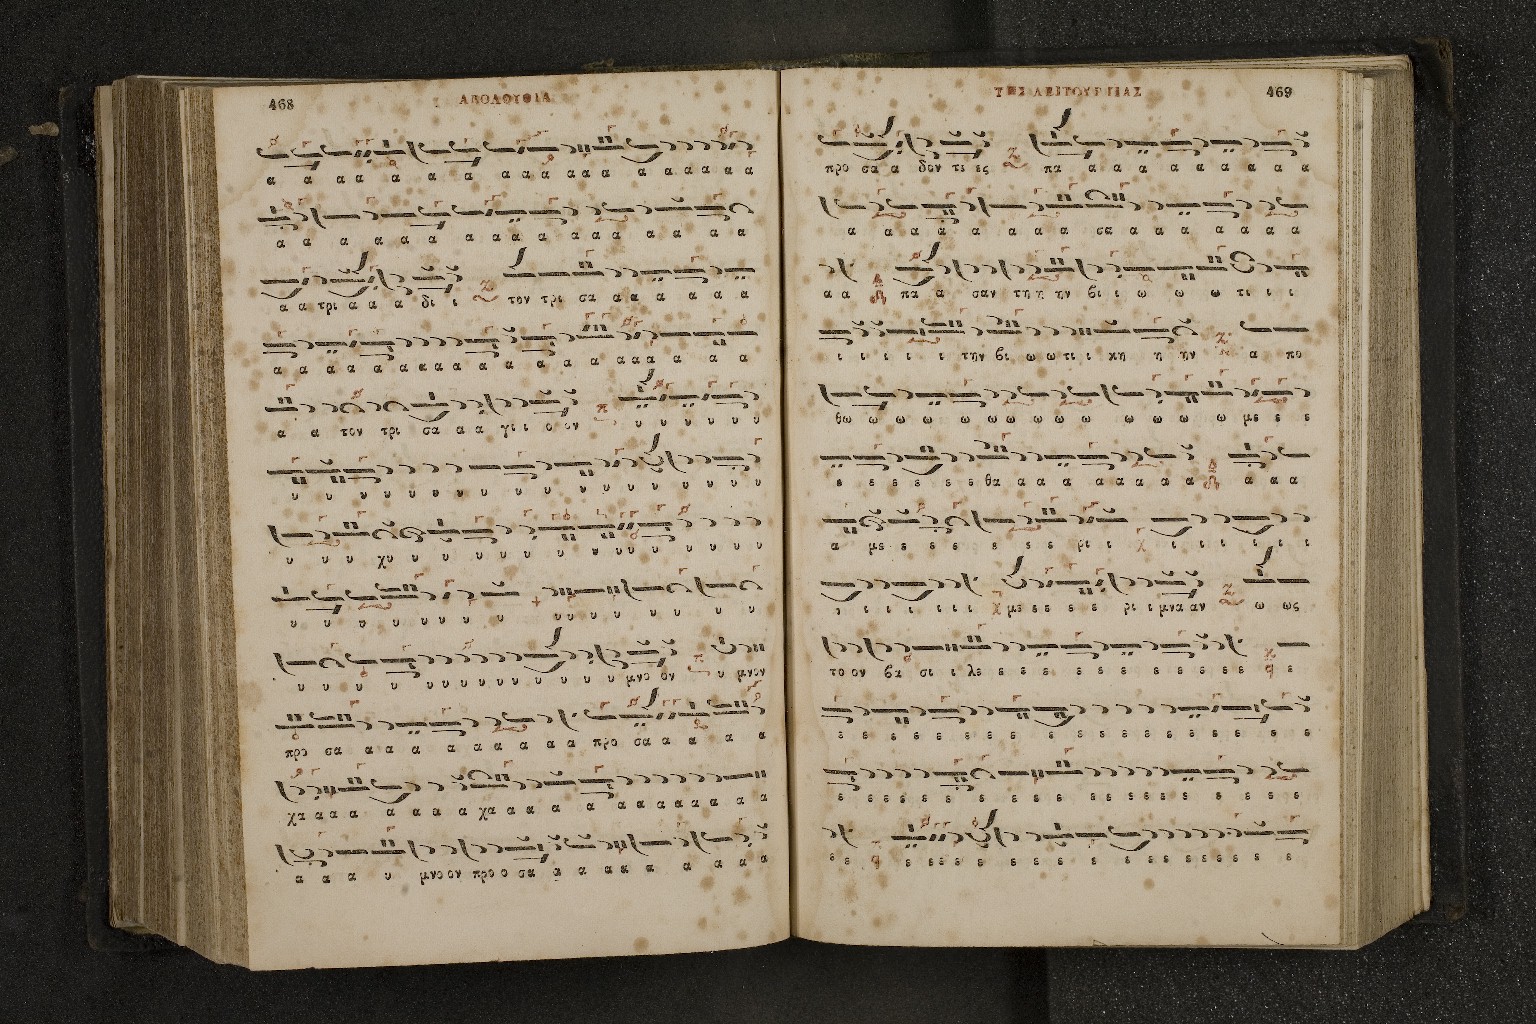 468 ΑΚΟΛΟΥΘΙΑ
α α α α α α α α α α α α α α α α α α
α α α α α α α α α α α α α α α α
α α τρι α α α δι ι τον τρι σα α α α α α α
α α α α α α α α α α α α α α α α α α
α α τον τρι σα α α γι ι ο ον υ υ υ υ υ υ
υ υ υ υ υ υ υ υ υ υ υ υ υ υ υ υ υ
υ υ χυ υ υ υ υ υ υ υ υ υ υ υ υ υ
υ υ υ υ υ υ υ υ υ υ υ υ υ
υ υ υ υ υ υ υ υ υ υ υ υ υ μνο ον υ μνον
προ σα α α α α α α α α α προ σα α α α α
χα α α α α α α χα α α α α α α α α α α α α
α α α υ μνο ον προ ο σα α α α α α α α α
ΤΗΣ ΛΕΙΤΟΥΡΓΙΑΣ 469
προ σα α δον τε ες πα α α α α α α α α
α α α α α α α σα α α α α α α α
α α πα α σαν τη η ην βι ι ω ω ω τι ι ι
ι ι ι ι ι την βι ω ω τι ι κη η ην α πο
θω ω ω ω ω ω ω ω ω ω ω ω ω ω με ε ε
ε ε ε ε ε ε θα α α α α α α α α α α α
α με ε ε ε ε ε ε ε ρι ι ι ι ι ι ι ι
ι ι ι ι ι ι με ε ε ε ε ρι ι μνα αν ω ως
το ον βα σι ι λε ε ε ε ε ε ε ε ε ε ε ε
ε ε ε ε ε ε ε ε ε ε ε ε ε ε ε ε ε
ε ε ε ε ε ε ε ε ε ε ε ε ε ε ε ε ε ε
ε ε ε ε ε ε ε ε ε ε ε ε ε ε ε ε ε ε ε ε